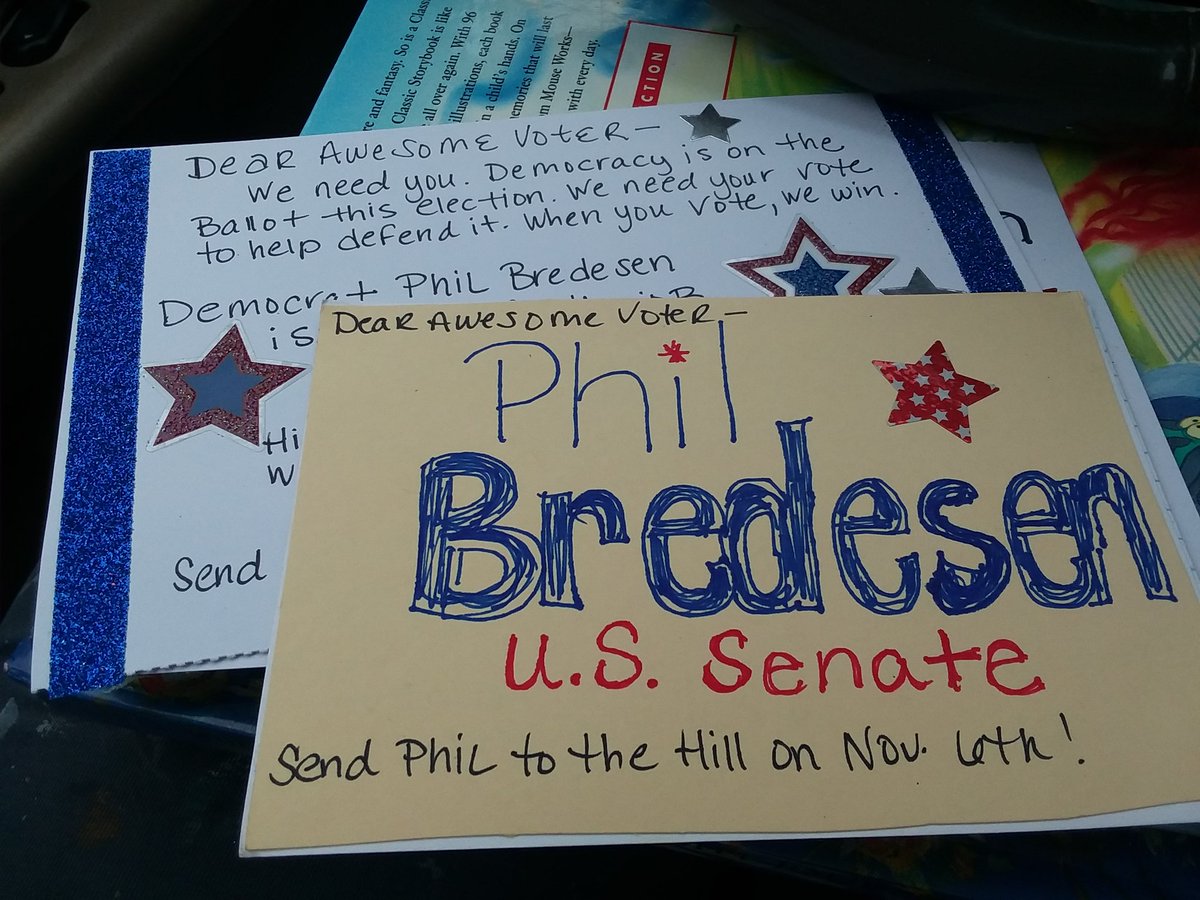 re and fantasy. So is a Class
Classic Storybook is like
all over again. With 96
illustrations, each book
n a child's hands. On
emories that will last
om Mouse Works—
with every day.
CTION
Dear Awesome Voter —
We need you. Democracy is on the
Ballot this election. We need your vote
to help defend it. When you vote, we win.
Democrat Phil Bredesen
is
Hi
W
Send
Dear Awesome Voter —
Phil
Bredesen
U.S. Senate
Send Phil to the Hill on Nov. 6th!